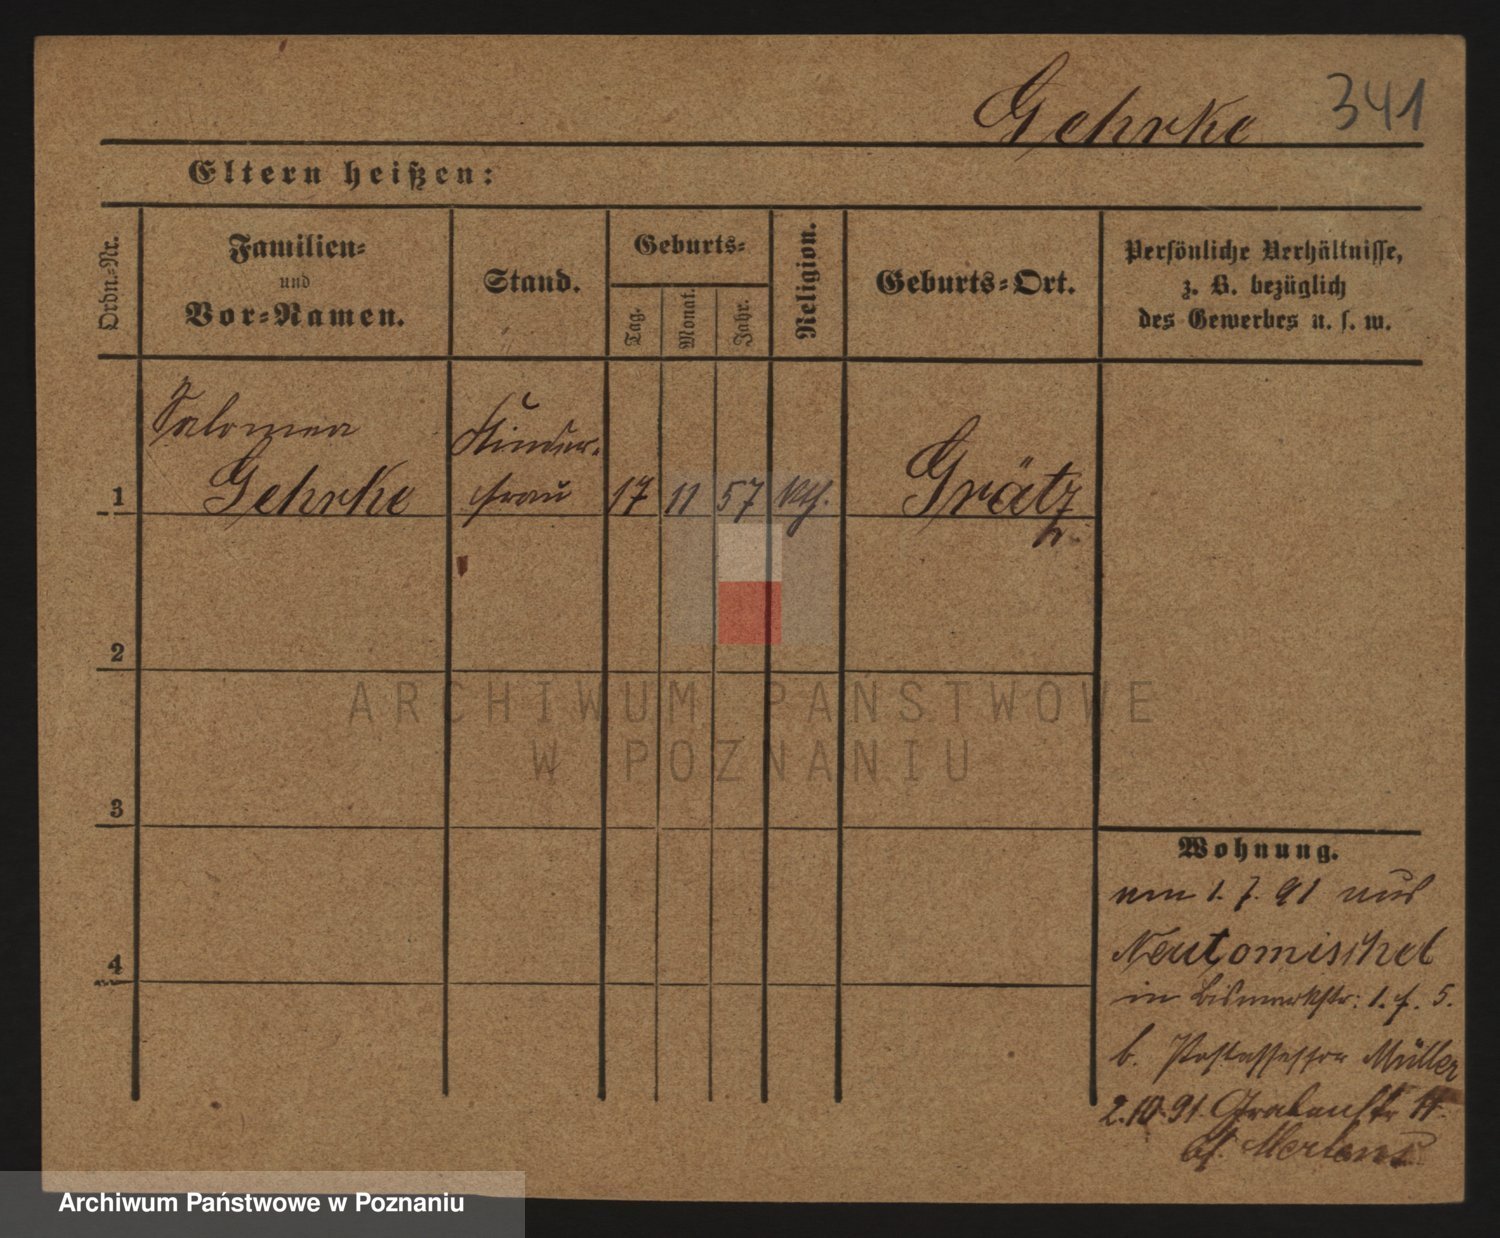 Gehrke 341
Eltern heißen:
Ordn.=Nr.
Familien=
und
Vor=Namen.
Stand.
Geburts=
Tag.
Monat.
Jahr.
Religion.
Geburts=Ort.
Persönliche Verhältnisse,
z. B. bezüglich
des Gewerbes u. s. w.
Salomea
Gehrke
Kinder-
frau
1
17 11 57 kth.
Grätz
2
3
4
Wohnung.
am 1. 7. 91 aus
Neutomischel
in Bismarkstr: 1. 5.
b. Postassessor Müller
2.10.91. Grabenstr 11.
bf. Mertens
ARCHIWUM PAŃSTWOWE
W POZNANIU
Archiwum Państwowe w Poznaniu